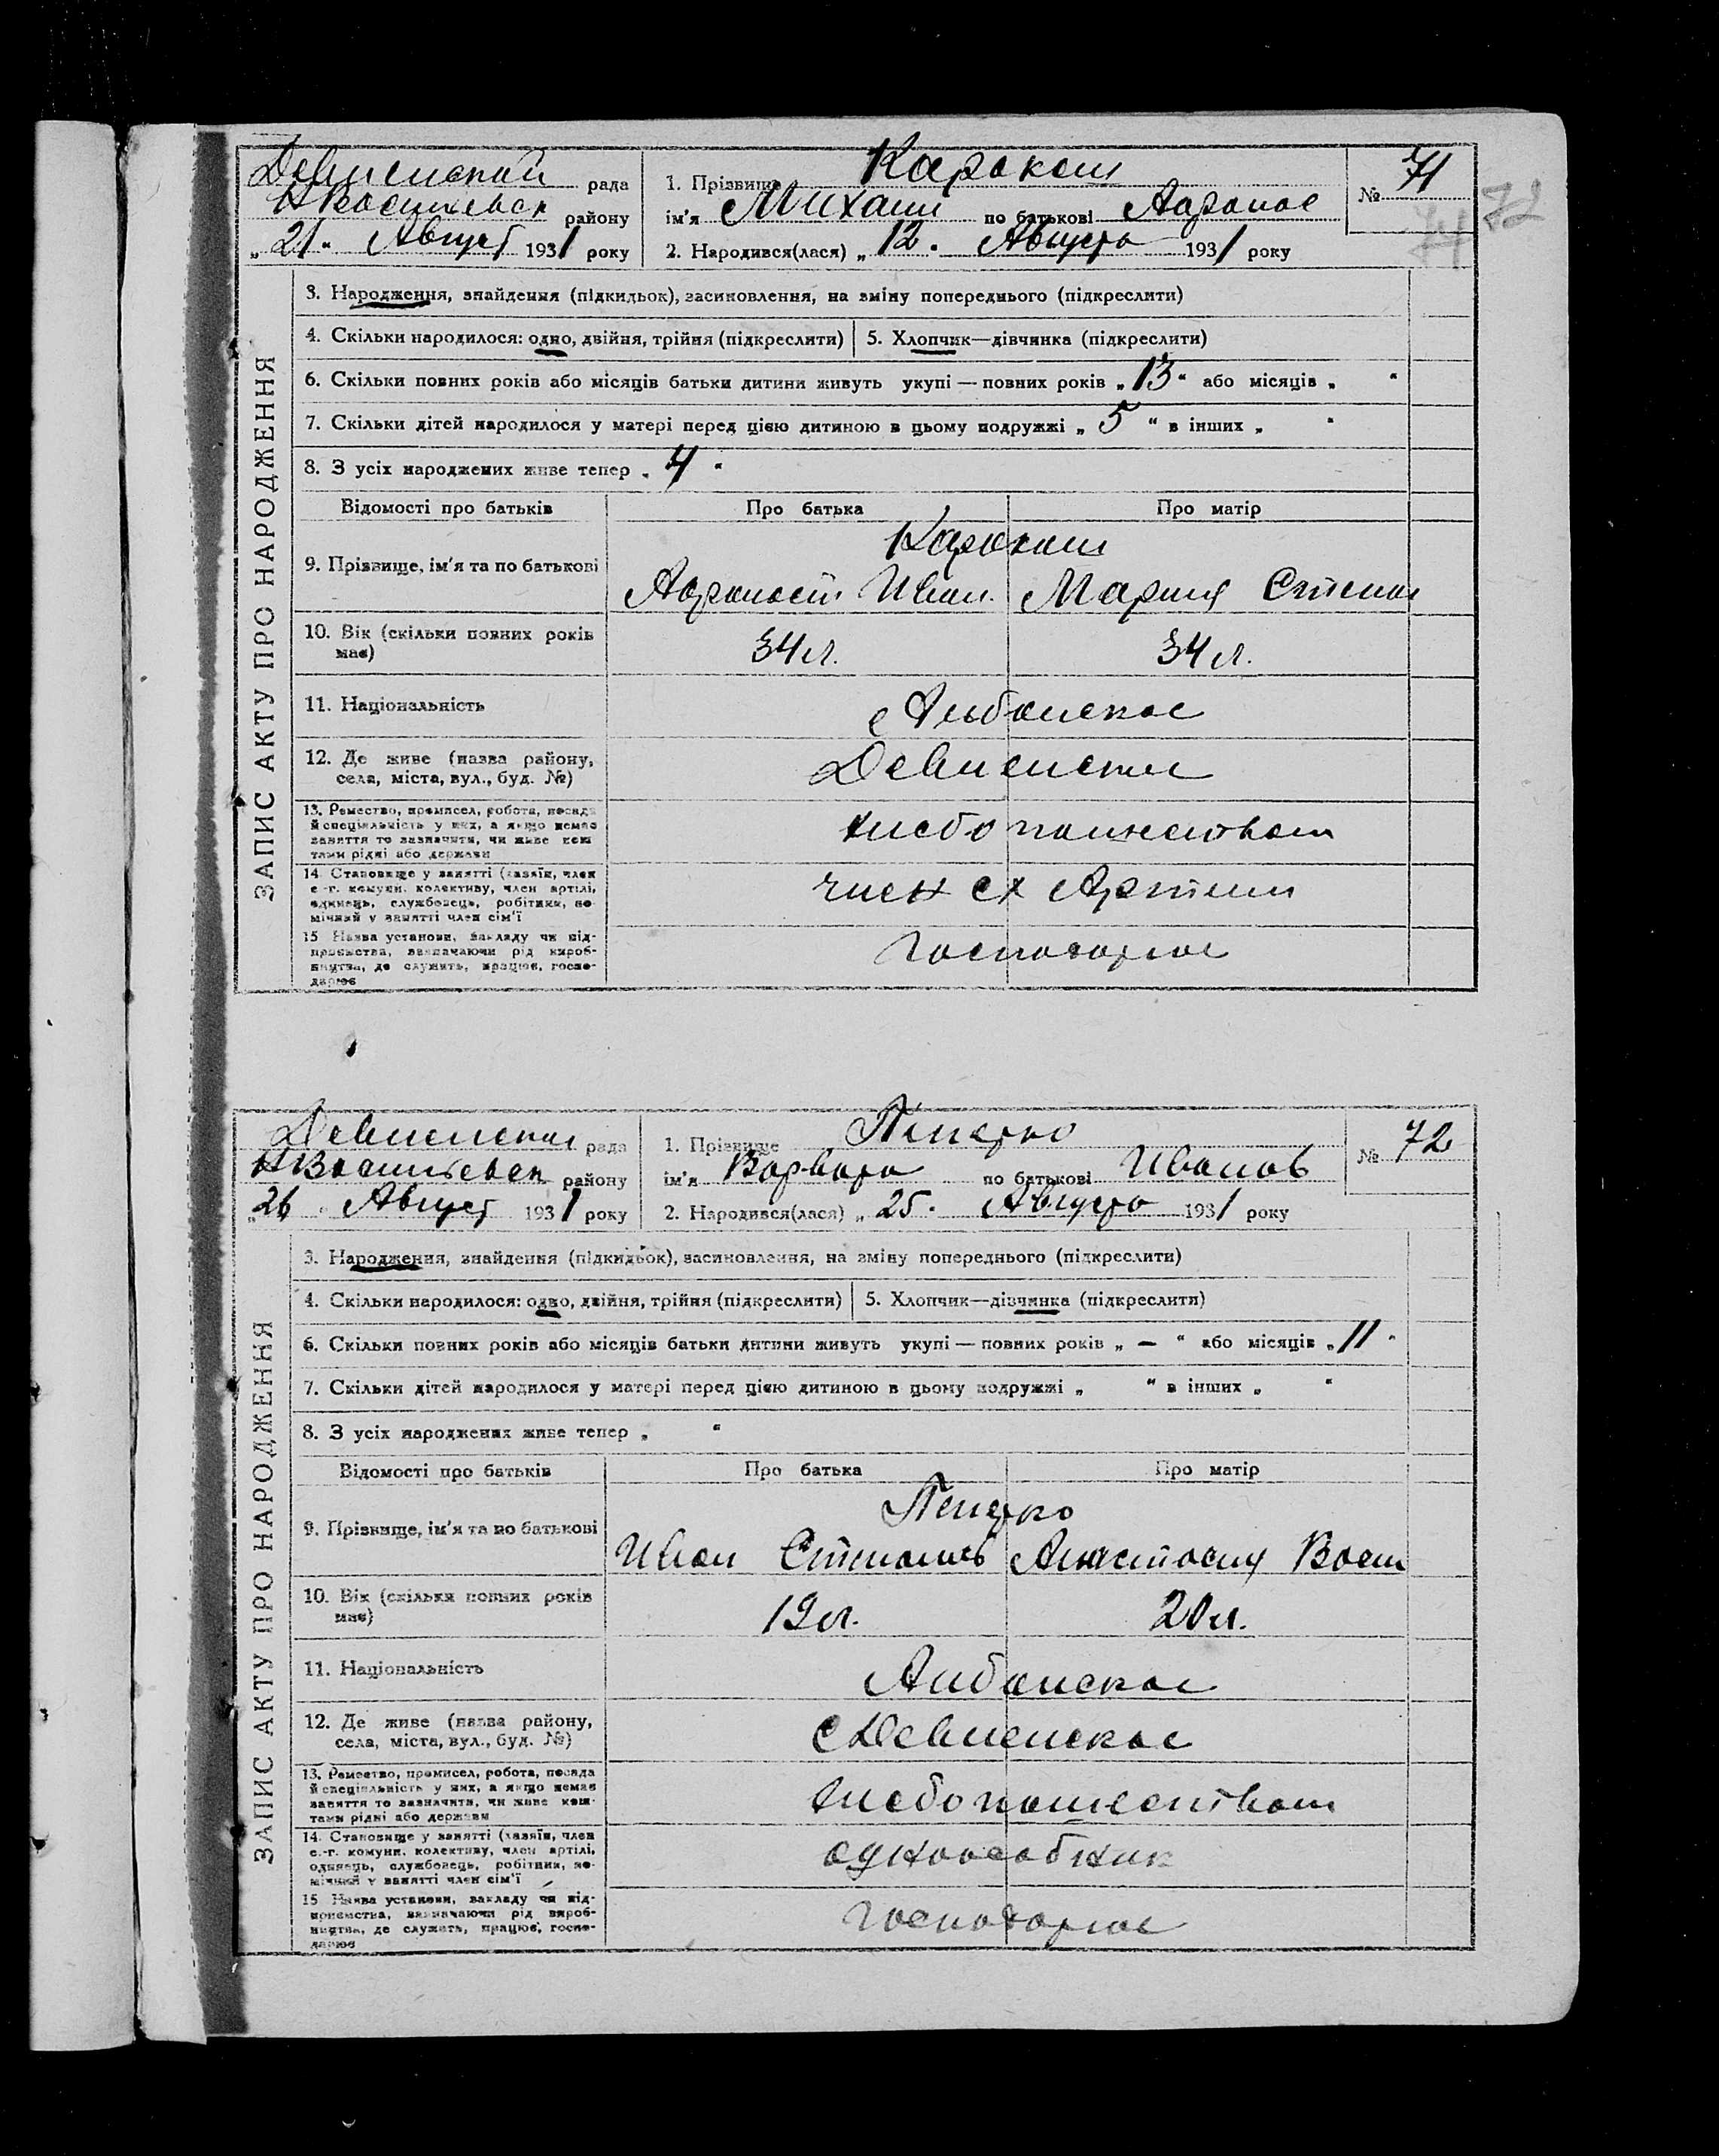 Девненский рада
НВасильевск району
„21“ Август 1931 року
1. Прізвище Каракаш
ім'я Михаил по батькові
2. Народився(лася) „12“ Августа 1931 року
№ 71
72
ЗАПИС АКТУ ПРО НАРОДЖЕННЯ
3. Народження, знайдення (підкидьок), засиновлення, на зміну попереднього (підкреслити)
4. Скільки народилося: одно, двійня, трійня (підкреслити)
5. Хлопчик—дівчинка (підкреслити)
6. Скільки повних років або місяців батьки дитини живуть укупі — повних років „13“ або місяців „ “
7. Скільки дітей народилося у матері перед цією дитиною в цьому подружжі „5“ в інших „ “
8. З усіх народжених живе тепер „4“
Відомості про батьків Про батька Про матір
9. Прізвище, ім'я та по батькові
Каракаш
Иван. Мария Степан
10. Вік (скільки повних років має)
34 л. 34 л.
11. Національність
Албанская
12. Де живе (назва району,
села, міста, вул., буд. №)
Девненская
13. Ремество, промисел, робота, посада
й спеціяльність у них, а якщо немає
заняття то зазначити, чи живе кош-
тами рідні або держави
хлебопашеством
14. Становище у занятті (хазяїн, член
с.-г. комуни, колективу, член артілі,
одинець, службовець, робітник, по-
мічний у занятті член сім'ї
член сх Артели
15. Назва установи, закладу чи під-
приємства, зазначаючи рід вироб-
ництва, де служить, працює, госпо-
дарює
Господарює
Девненская рада
НВасильевск району
„26“ Август 1931 року
1. Прізвище Пейчко
ім'я Варвара по батькові Иванов
2. Народився(лася) „25“ Августа 1931 року
№ 72
ЗАПИС АКТУ ПРО НАРОДЖЕННЯ
3. Народження, знайдення (підкидьок), засиновлення, на зміну попереднього (підкреслити)
4. Скільки народилося: одно, двійня, трійня (підкреслити)
5. Хлопчик—дівчинка (підкреслити)
6. Скільки повних років або місяців батьки дитини живуть укупі — повних років „—“ або місяців „11“
7. Скільки дітей народилося у матері перед цією дитиною в цьому подружжі „ “ в інших „ “
8. З усіх народжених живе тепер „ “
Відомості про батьків Про батька Про матір
9. Прізвище, ім'я та по батькові
Иван Степанов Анастасия Васил
10. Вік (скільки повних років має)
19 л. 20 л.
11. Національність
Албанская
12. Де живе (назва району,
села, міста, вул., буд. №)
с Девненское
13. Ремество, промисел, робота, посада
й спеціяльність у них, а якщо немає
заняття то зазначити, чи живе кош-
тами рідні або держави
хлебопашеством
14. Становище у занятті (хазяїн, член
с.-г. комуни, колективу, член артілі,
одинець, службовець, робітник, по-
мічний у занятті член сім'ї
одноособник
15. Назва установи, закладу чи під-
приємства, зазначаючи рід вироб-
ництва, де служить, працює, госпо-
дарює
Господарює